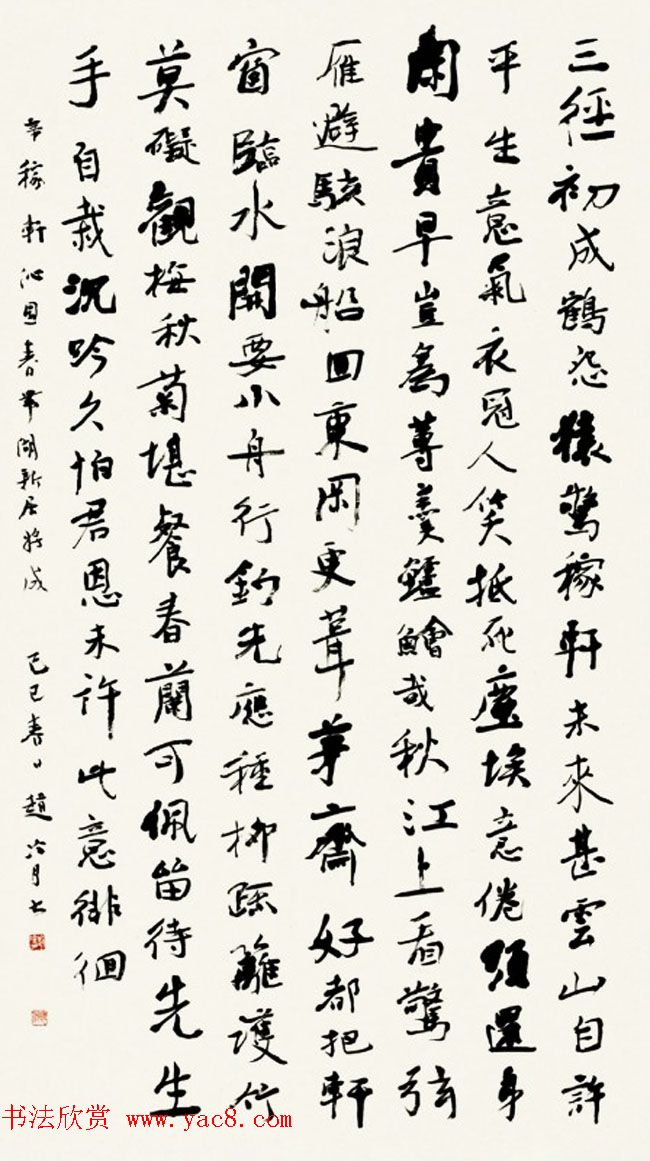 三徑初成鶴怨猿驚稼軒未來甚雲山自許
平生意氣衣冠人笑抵死塵埃意倦須還身
閑貴早豈為蓴羹鱸鱠哉秋江上看驚弦
雁避駭浪船回東岡更葺茅齋好都把軒
窗臨水開要小舟行釣先應種柳疏籬護竹
莫礙觀梅秋菊堪餐春蘭可佩留待先生
手自栽沉吟久怕君恩未許此意徘徊
辛稼軒沁園春帶湖新居將成 己巳春日趙冷月書
书法欣赏 www.yac8.com